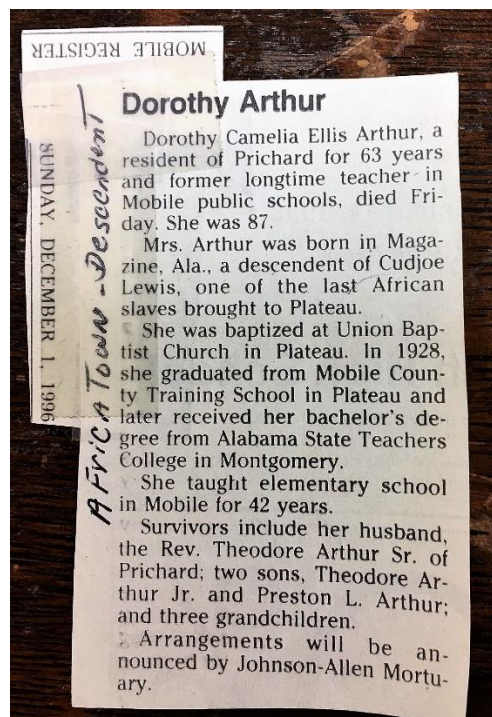 MOBILE REGISTER
SUNDAY, DECEMBER 1, 1996
AFRICA TOWN - Descendent
Dorothy Arthur
Dorothy Camelia Ellis Arthur, a
resident of Prichard for 63 years
and former longtime teacher in
Mobile public schools, died Fri-
day. She was 87.
Mrs. Arthur was born in Maga-
zine, Ala., a descendent of Cudjoe
Lewis, one of the last African
slaves brought to Plateau.
She was baptized at Union Bap-
tist Church in Plateau. In 1928,
she graduated from Mobile Coun-
ty Training School in Plateau and
later received her bachelor's de-
gree from Alabama State Teachers
College in Montgomery.
She taught elementary school
in Mobile for 42 years.
Survivors include her husband,
the Rev. Theodore Arthur Sr. of
Prichard; two sons, Theodore Ar-
thur Jr. and Preston L. Arthur;
and three grandchildren.
Arrangements will be an-
nounced by Johnson-Allen Mortu-
ary.